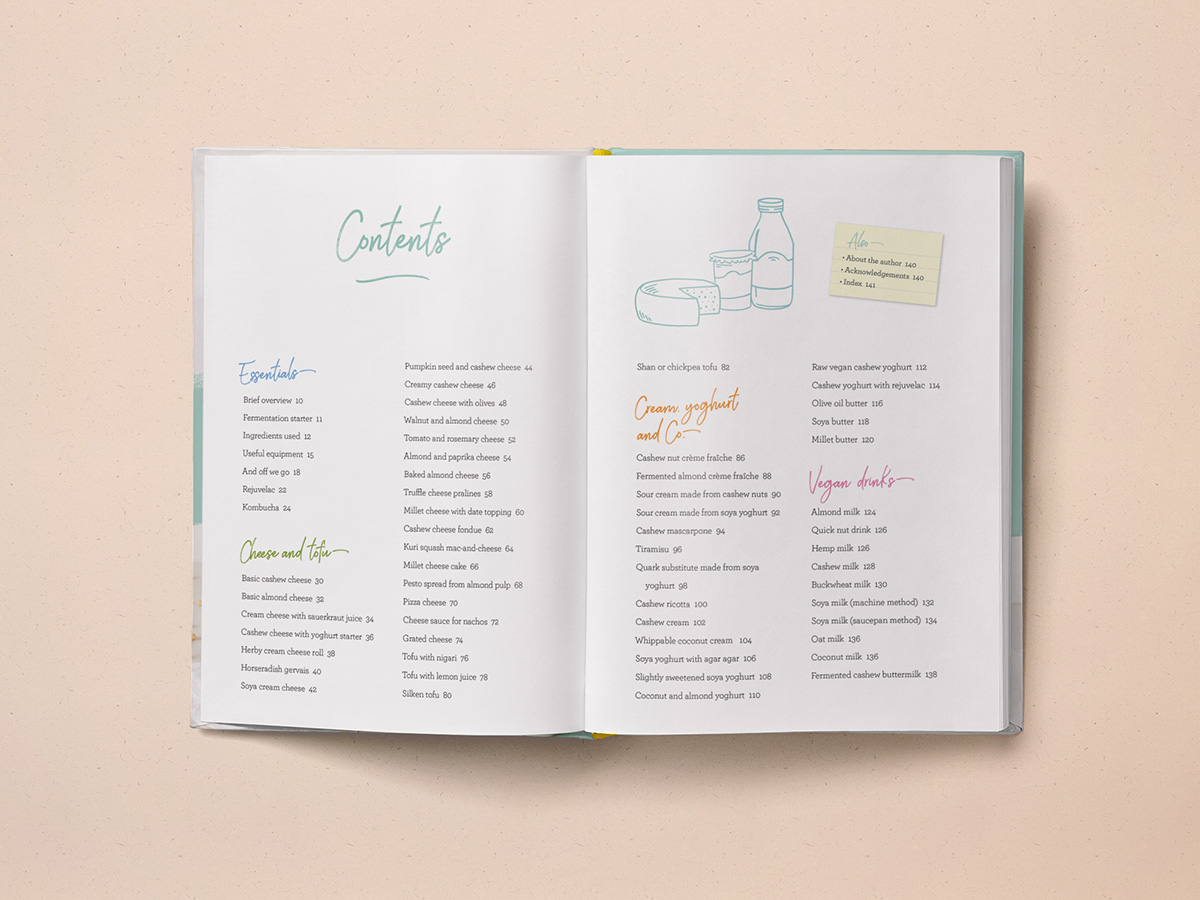 Contents
Essentials
Brief overview 10
Fermentation starter 11
Ingredients used 12
Useful equipment 15
And off we go 18
Rejuvelac 22
Kombucha 24
Cheese and tofu
Basic cashew cheese 30
Basic almond cheese 32
Cream cheese with sauerkraut juice 34
Cashew cheese with yoghurt starter 36
Herby cream cheese roll 38
Horseradish gervais 40
Soya cream cheese 42
Pumpkin seed and cashew cheese 44
Creamy cashew cheese 46
Cashew cheese with olives 48
Walnut and almond cheese 50
Tomato and rosemary cheese 52
Almond and paprika cheese 54
Baked almond cheese 56
Truffle cheese pralines 58
Millet cheese with date topping 60
Cashew cheese fondue 62
Kuri squash mac-and-cheese 64
Millet cheese cake 66
Pesto spread from almond pulp 68
Pizza cheese 70
Cheese sauce for nachos 72
Grated cheese 74
Tofu with nigari 76
Tofu with lemon juice 78
Silken tofu 80
Also
• About the author 140
• Acknowledgements 140
• Index 141
Shan or chickpea tofu 82
Cream, yoghurt
and Co.
Cashew nut crème fraîche 86
Fermented almond crème fraîche 88
Sour cream made from cashew nuts 90
Sour cream made from soya yoghurt 92
Cashew mascarpone 94
Tiramisu 96
Quark substitute made from soya
yoghurt 98
Cashew ricotta 100
Cashew cream 102
Whippable coconut cream 104
Soya yoghurt with agar agar 106
Slightly sweetened soya yoghurt 108
Coconut and almond yoghurt 110
Raw vegan cashew yoghurt 112
Cashew yoghurt with rejuvelac 114
Olive oil butter 116
Soya butter 118
Millet butter 120
Vegan drinks
Almond milk 124
Quick nut drink 126
Hemp milk 126
Cashew milk 128
Buckwheat milk 130
Soya milk (machine method) 132
Soya milk (saucepan method) 134
Oat milk 136
Coconut milk 136
Fermented cashew buttermilk 138